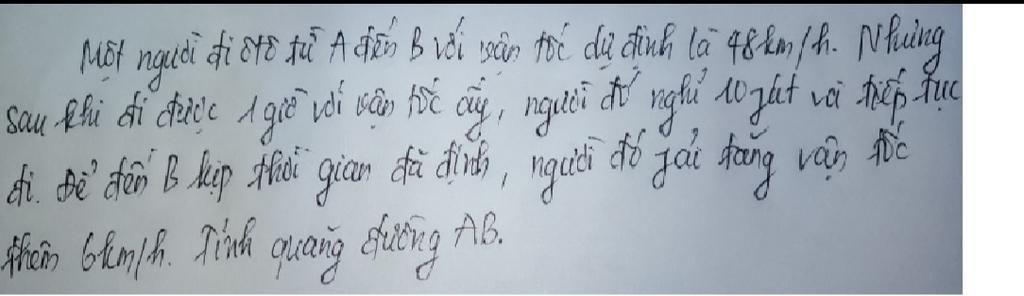 Một người đi ôtô từ A đến B với vận tốc dự định là 48km/h. Nhưng
sau khi đi được 1 giờ với vận tốc ấy, người đó nghỉ 10 phút và tiếp tục
đi. Để đến B kịp thời gian đã định, người đó phải tăng vận tốc
thêm 6km/h. Tính quãng đường AB.